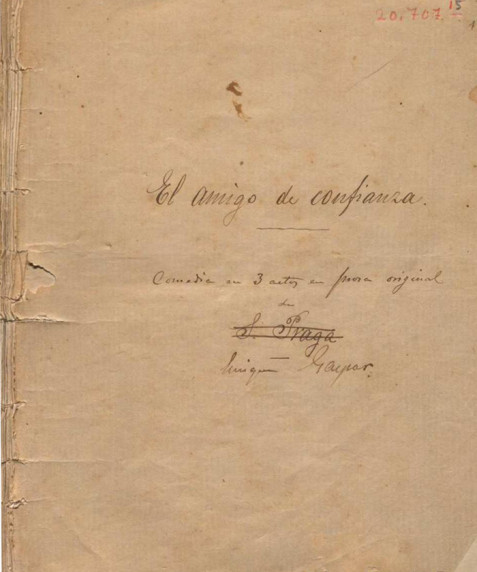 20.707 15
El amigo de confianza.
Comedia en 3 actos en prosa original
de
S. Praga
Enrique Gaspar.